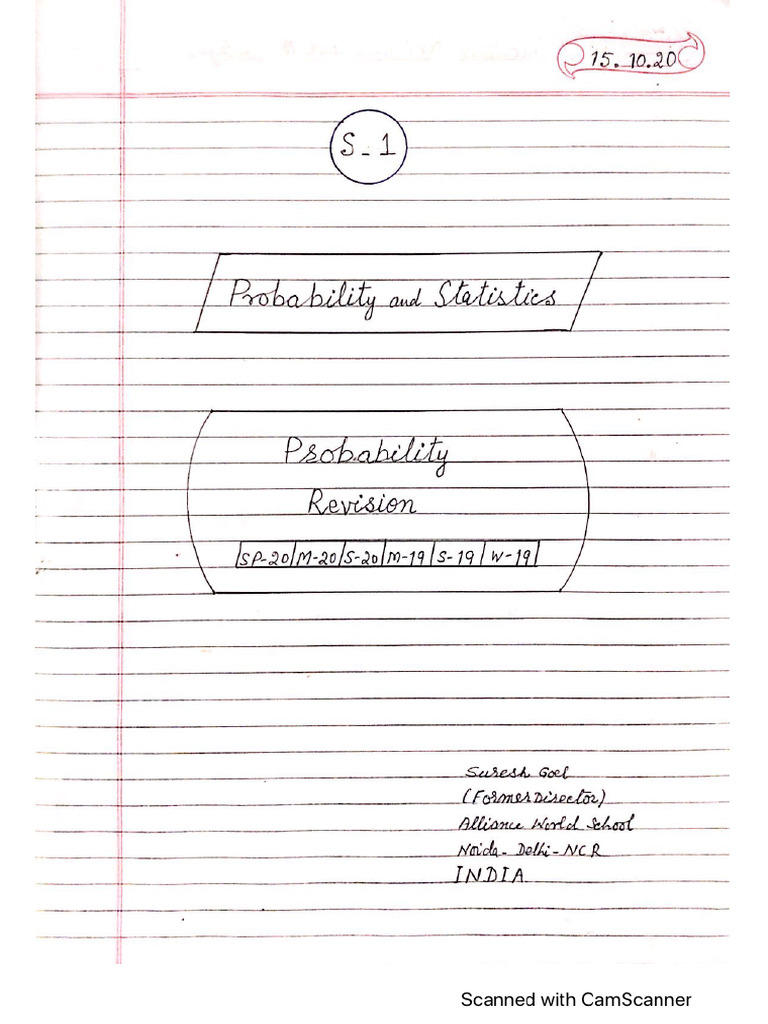 15.10.20
S-1
Probability and Statistics
Probability
Revision
SP-20 M-20 S-20 M-19 S-19 W-19
Suresh Goel
(Former Director)
Alliance World School
Noida-Delhi-NCR
INDIA
Scanned with CamScanner